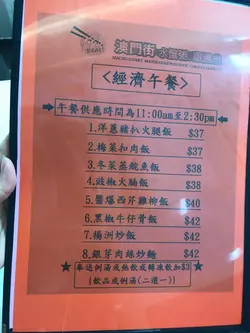 澳門街
<經濟午餐>
午餐供應時間為11:00am至2:30pm
1.洋蔥豬扒火腿飯 $37
2.梅菜扣肉飯 $37
3.冬菜蒸鯇魚飯 $38
4.豉椒火腩飯 $38
5.醬爆西芹雞柳飯 $40
6.黑椒牛仔骨飯 $42
7.楊洲炒飯 $42
8.銀芽肉絲炒麵 $42
奉送例湯或熱飲或轉凍飲加$3
(飲品或例湯(二選一)